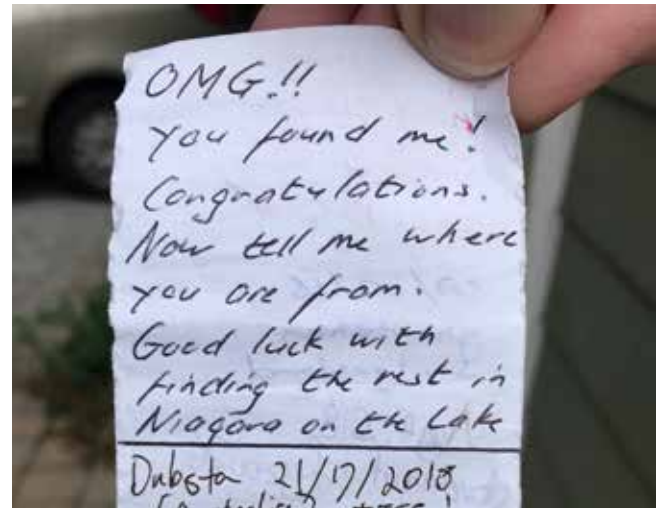 OMG.!!
You found me!
Congratulations.
Now tell me where
you are from.
Good luck with
finding the rest in
Niagara on the Lake
Dubsta 21/17/2018